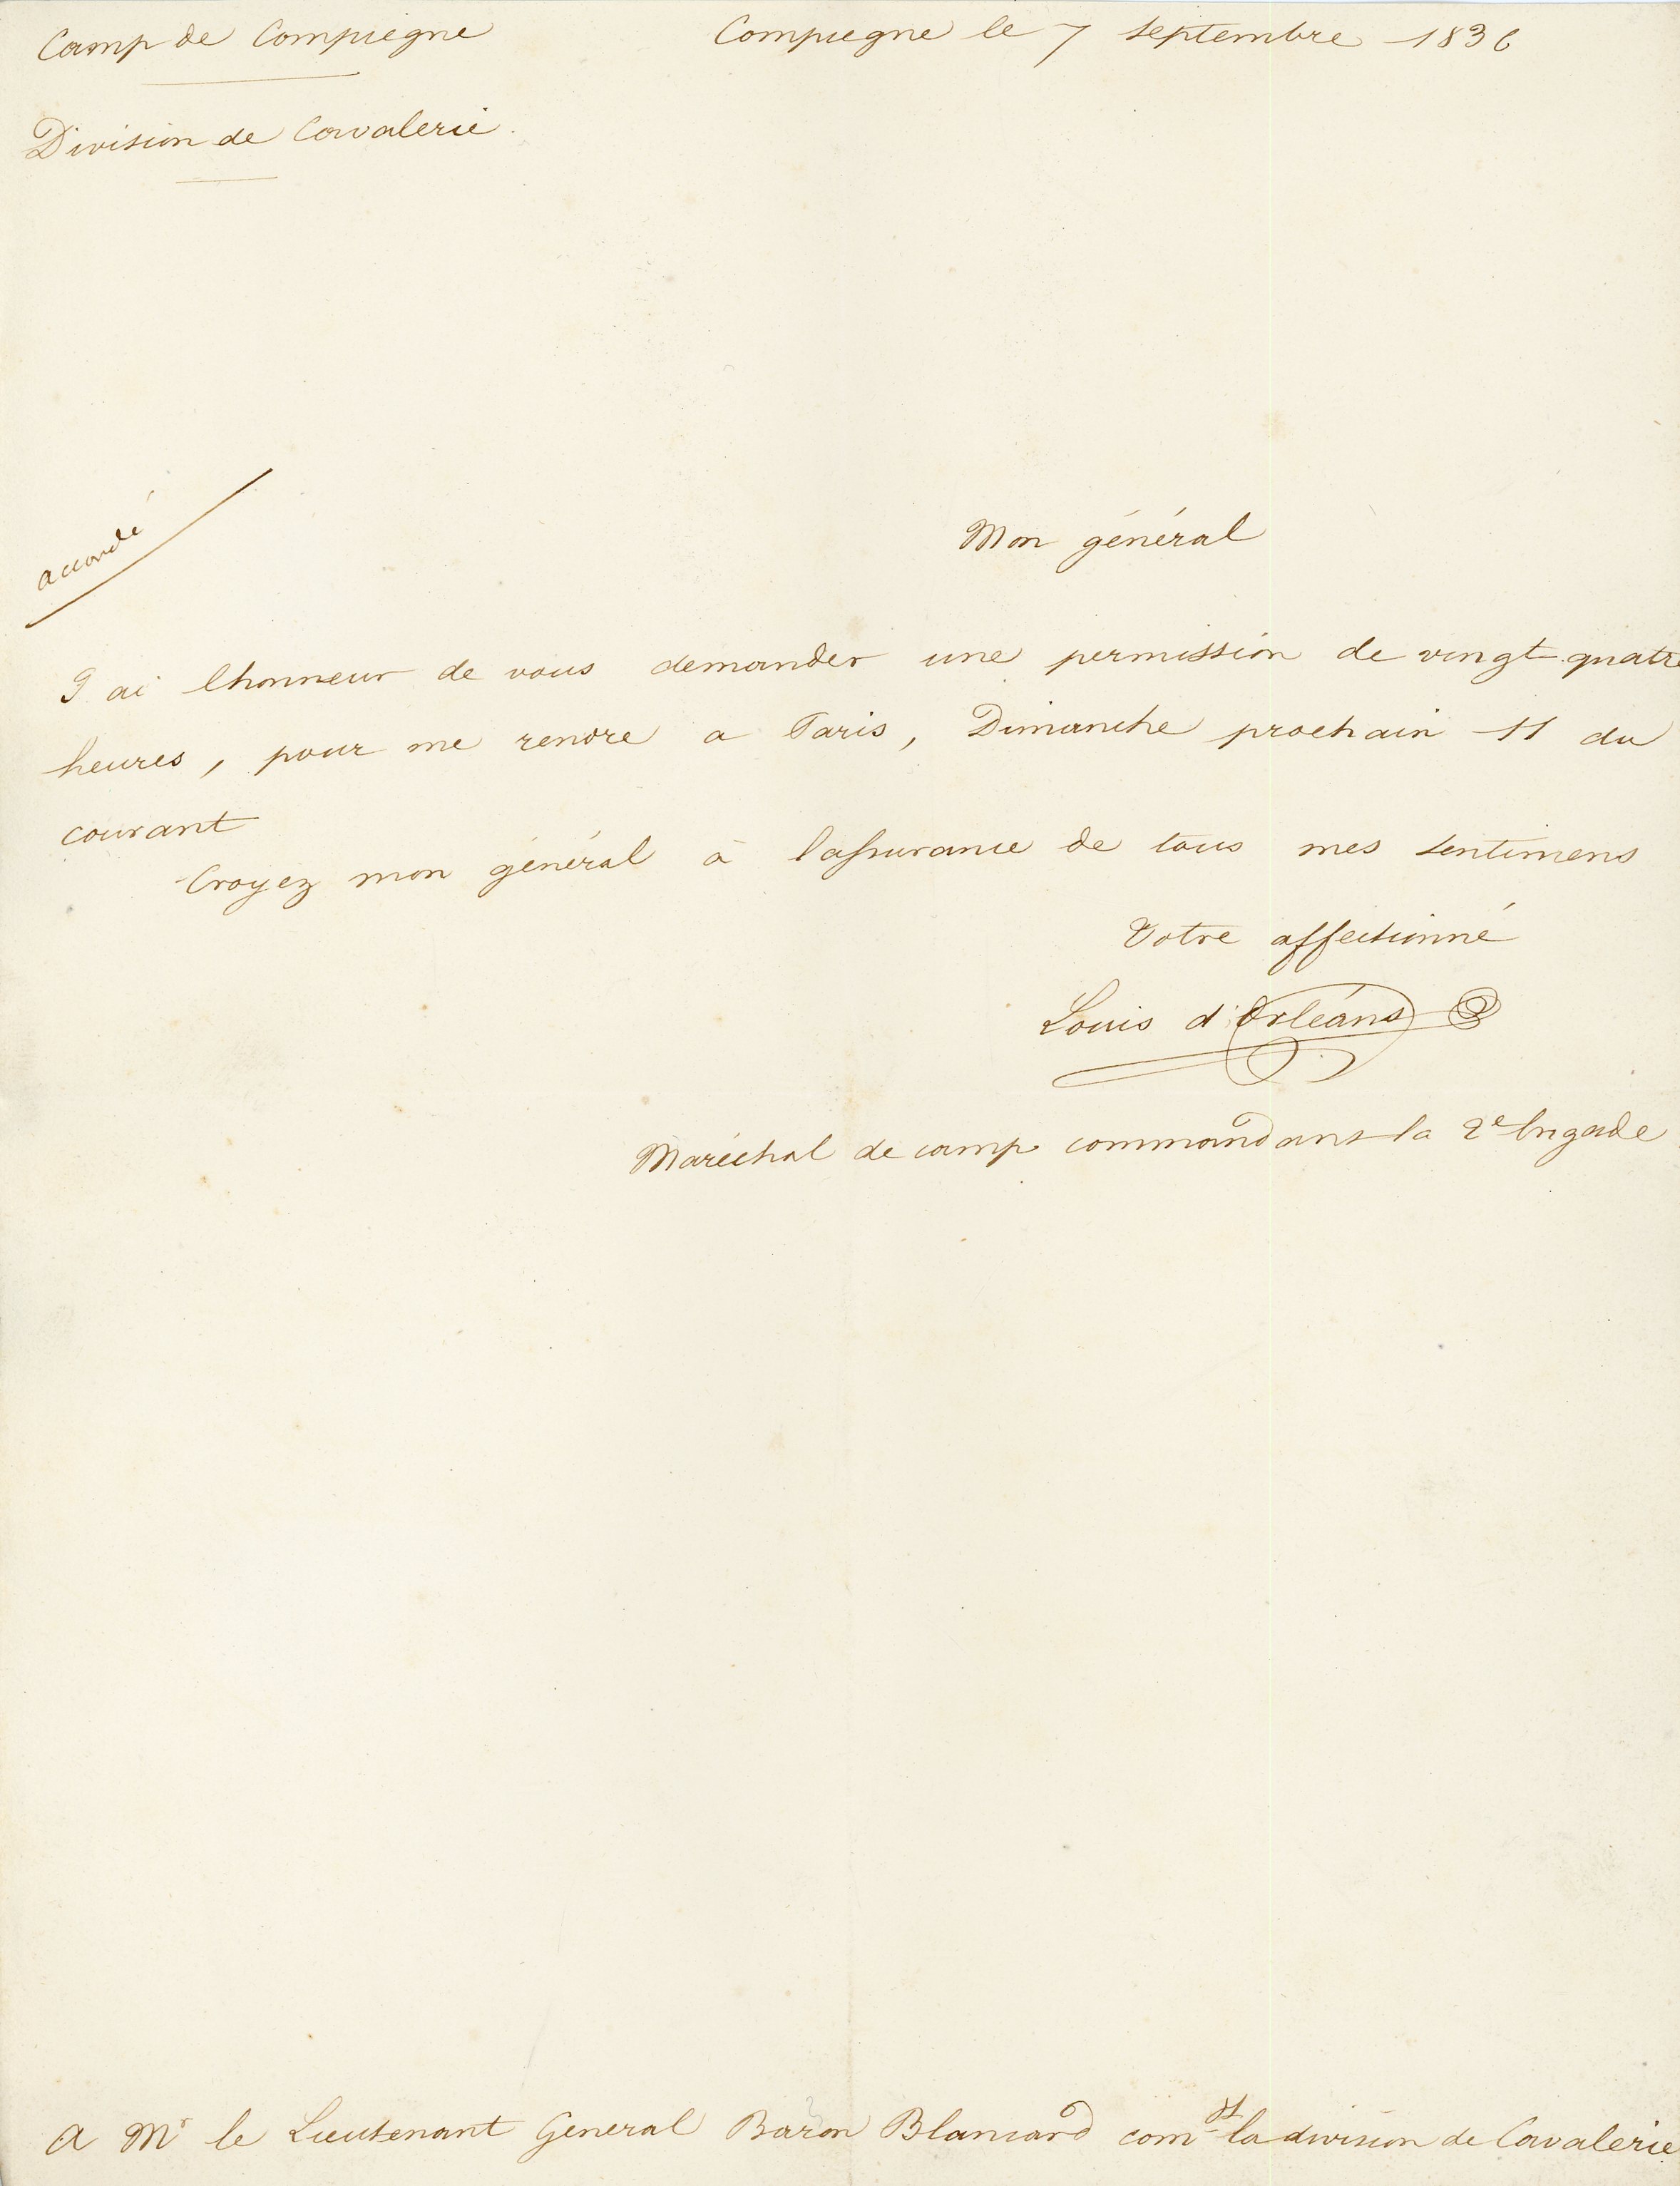 Camp de Compiegne
Compiegne le 7 septembre 1836
Division de Cavalerie.
accordé
Mon général
J ai lhonneur de vous demander une permission de vingt quatre
heures, pour me rendre a Paris, Dimanche prochain 11 du
courant
Croyez mon général à lassurance de tous mes sentimens
Votre affectionné
Louis d'Orléans
Maréchal de camp commandant la 2e brigade
A Mr le Lieutenant Général Baron Blancard comdt la division de Cavalerie